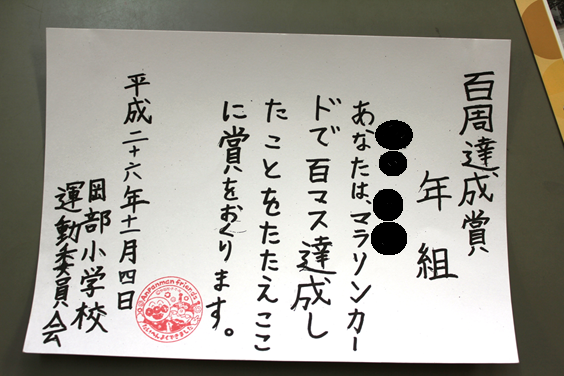 百周達成賞
年 組
あなたは、マラソンカー
ドで百マス達成し
たことをたたえここ
に賞をおくります。
平成二十六年十一月四日
岡部小学校
運動委員会
Anpanman friends
たいへんよくできました